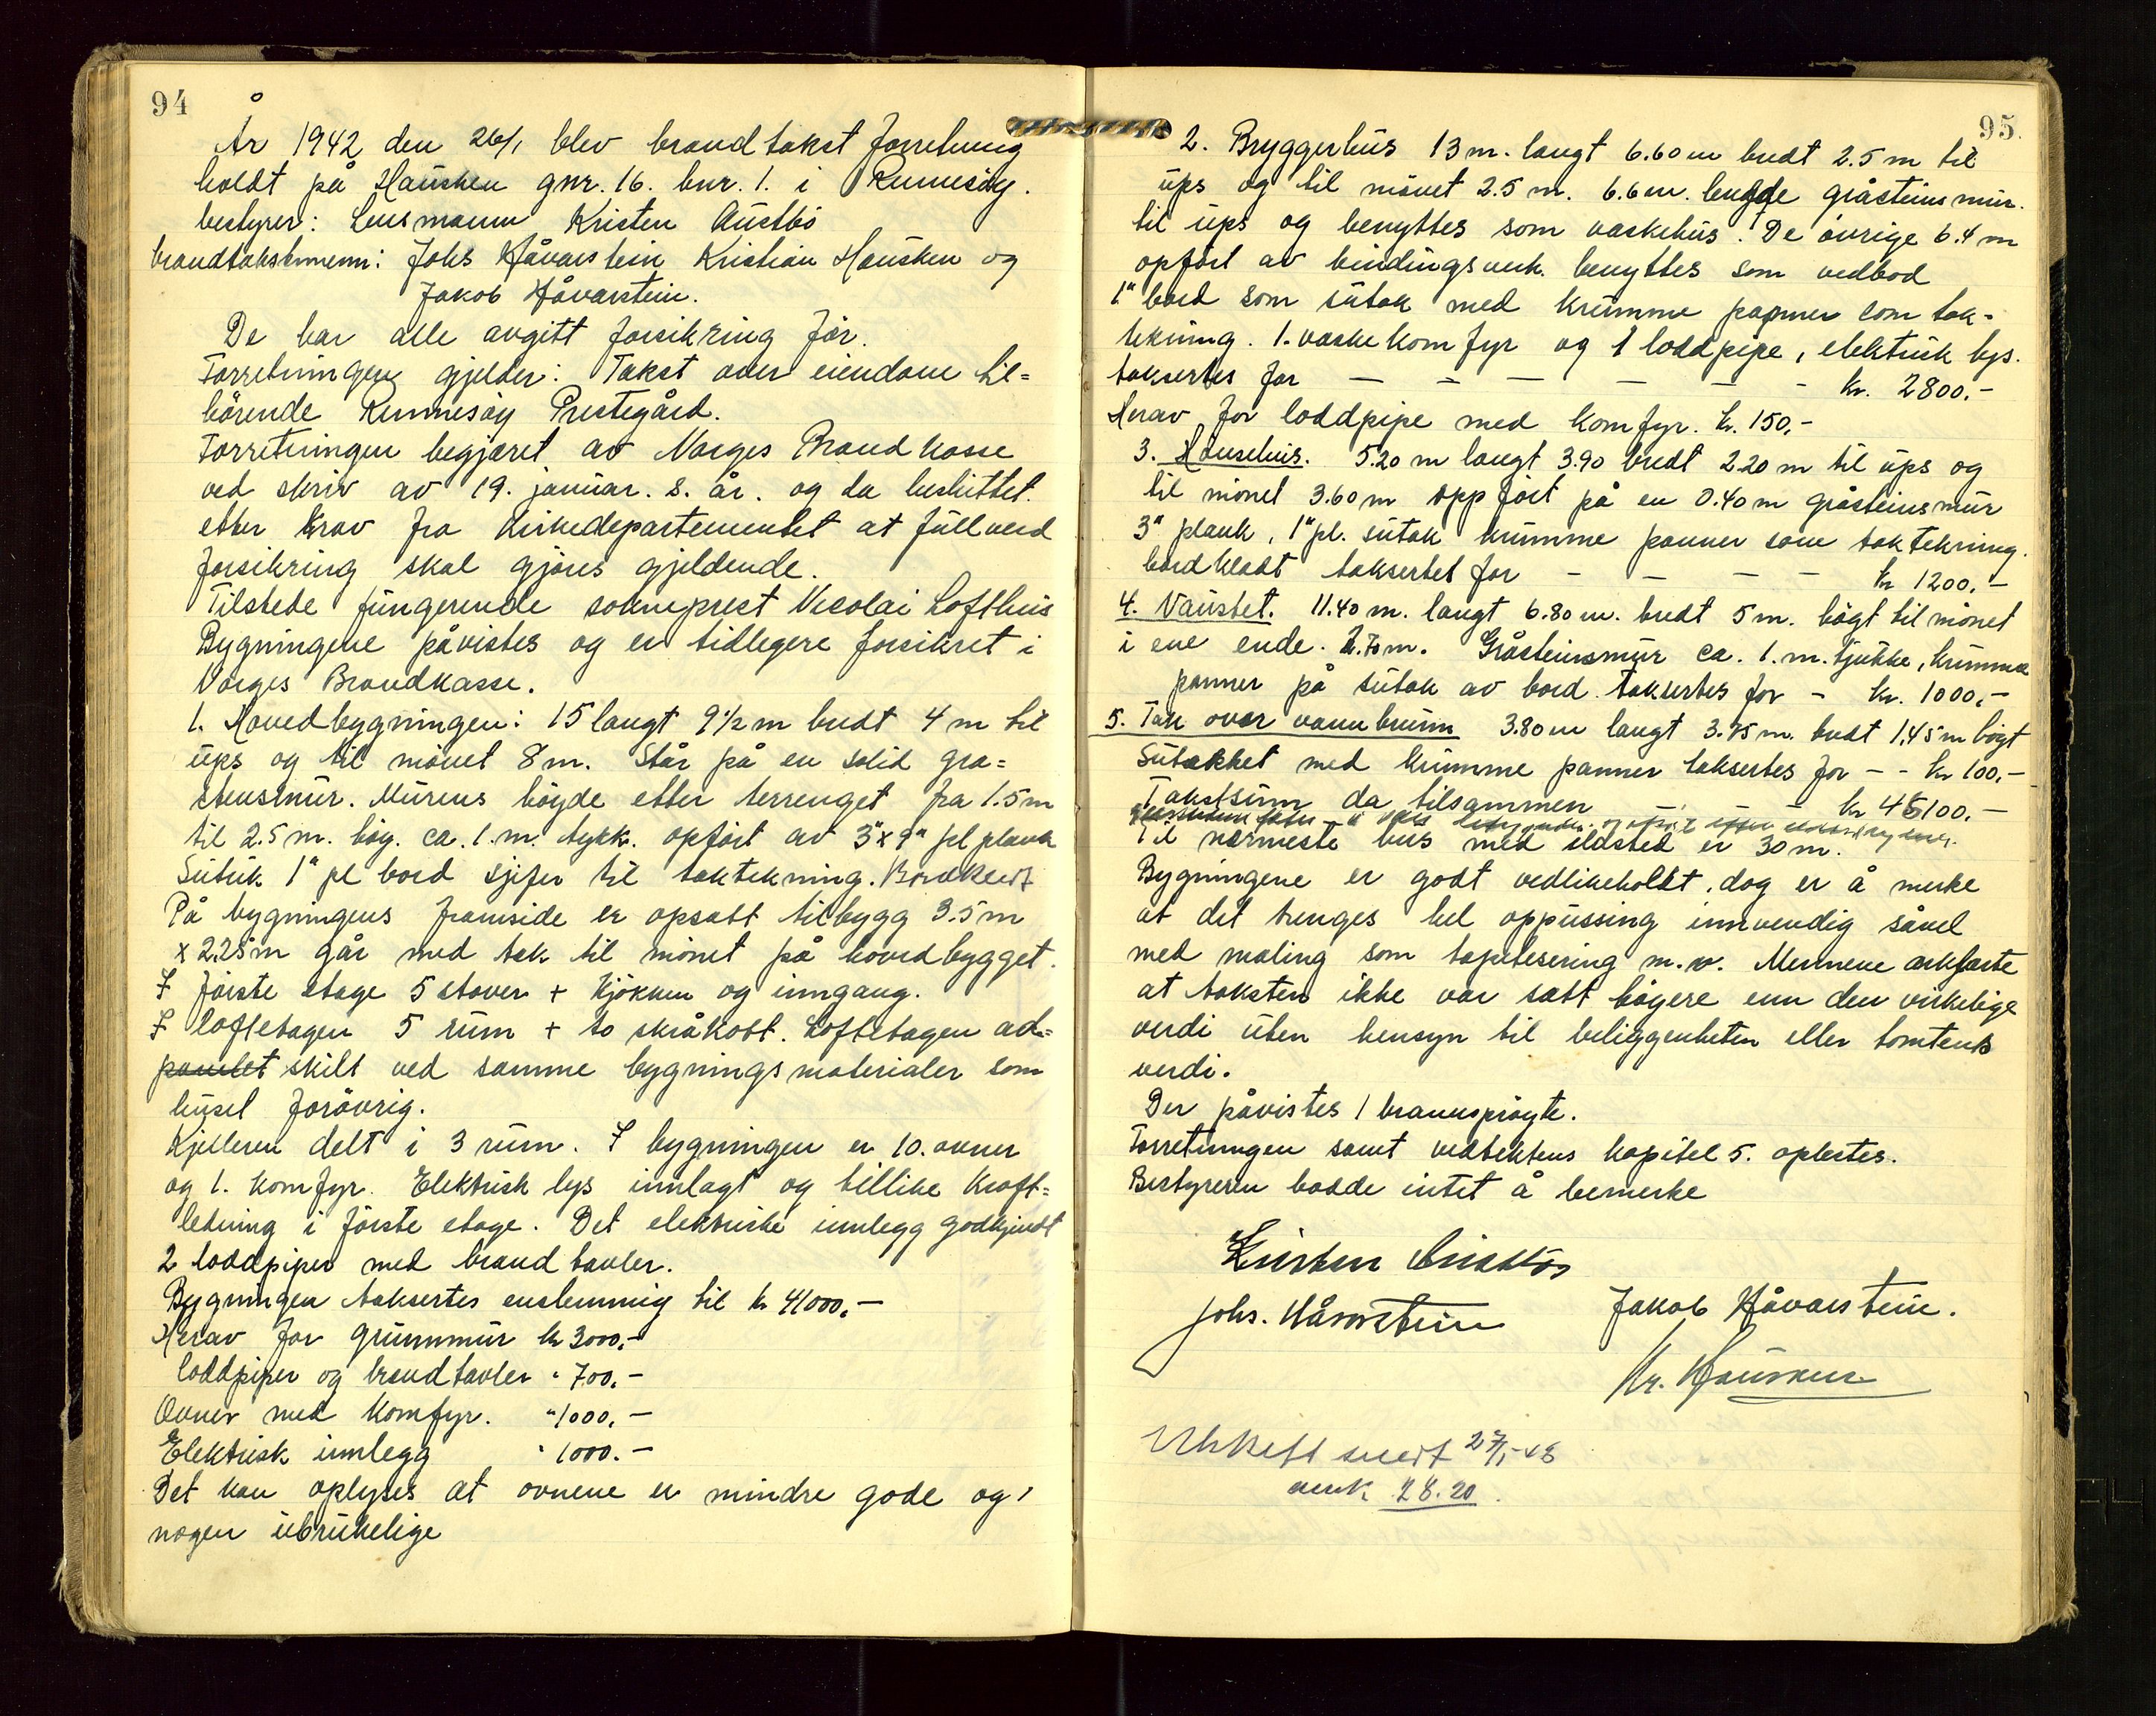 94
År 1942 den 26/1 blev brandtakst forretning
holdt på Hausken gnr. 16. bnr. 1. i Rennesöy.
bestyrer: Lensmann Kristen Austbö
brandtakstmenn: Johs Håvarstein Kristian Hausken og
Jakob Håvarstein.
De har alle avgitt forsikring för.
Forretningen gjelder: Takst over eiendom til=
hörende Rennesöy Prestegård.
Forretningen begjæret av Norges Brandkasse
ved skriv av 19. januar. s. år. og da besluttet.
etter krav fra Kirkedepartementet at fullverd
forsikring skal gjöres gjeldende.
Tilstede fungerende sokneprest Nicolai Lofthus
Bygningene påvistes og er tidlegere forsikret i
Norges Brandkasse.
1. Hovedbygningen: 15 langt 9½ m bredt 4 m til
ups og til mönet 8 m. Står på en solid grå=
stensmur. Murens höyde etter terrenget fra 1.5 m
til 2.5 m. höy. ca. 1. m. tykk. opfört av 3"x9" pl plank
Sutak 1" pl bord sjifer til taktekning. Bordkledt
På bygningens framside er opsatt tilbygg 3.5 m
x 2.25 m går med tak til mönet på hovedbygget.
I förste etage 5 stover + kjökken og inngang.
I loftetagen 5 rum + to skråkott. Loftetagen ad=
skilt ved samme bygningsmaterialer som
huset forövrig.
Kjelleren delt i 3 rum. I bygningen er 10. ovner
og 1. komfyr. Elektrisk lys innlagt og tillike kraft=
ledning i förste etage. Det elektriske innlegg godkjendt
2 loddpiper med brand tavler.
Bygningen taksertes enstemmig til kr 41000.-
Herav for grunnmur kr 3000.-
loddpiper og brandtavler " 700.-
Ovner med komfyr. " 1000.-
Elektrisk innlegg " 1000.-
Det kan oplyses at ovnene er mindre gode og
nogen ubrukelige
95.
2. Bryggerhus 13 m. langt 6.60 m bredt 2.5 m til
ups og til mönet 2.5 m. 6.6 m. gråsteinsmur.
til ups og benyttes som vaskehus. De övrige 6.4 m
opfört av bindingsverk. benyttes som vedbod
1" bord som sutak med krumme panner som tak-
tekning. 1. vaskekomfyr og 1 loddpipe, elektrisk lys.
taksertes for - - - - - - kr. 2800.-
Herav for loddpipe med komfyr. kr. 150.-
3. Hönsehus. 5.20 m langt 3.90 bredt 2.20 m til ups og
til mönet 3.60 m oppfört på en 0.40 m gråsteinsmur
3" plank, 1" pl. sutak krumme panner som taktekning.
bordkledt taksertet for - - - - kr 1200.-
4. Naustet. 11.40 m. langt 6.80 m. bredt 5 m. högt til mönet
i ene ende. 2.70 m. Gråsteinsmur ca. 1. m. tjukke, krumme
panner på sutak av bord. taksertes for - kr. 1000.-
5. Tak over vannbrunn 3.80 m langt 3.75 m. bredt 1.45 m högt
Sutekket med krumme panner taksertes for - - kr 100.-
Takstsum da tilsammen kr 46100.-
Til nærmeste hus med ildsted er 30 m.
Bygningene er godt vedlikeholdt, dog er å merke
at det trenges hel oppussing innvendig såvel
med maling som tapetsering m.v. Mennene
at taksten ikke var satt högere enn den virkelige
verdi uten hensyn til beliggenheten eller tomtens
verdi.
Der påvistes 1 brannspröyte.
Forretningen samt vedtektens kapitel 5. oplestes.
Bestyreren hadde intet å bemerke
Kristen Austbö
Johs. Håvarstein Jakob Håvarstein.
Kr. Hausken
Utskrift 27/1-48
28.20